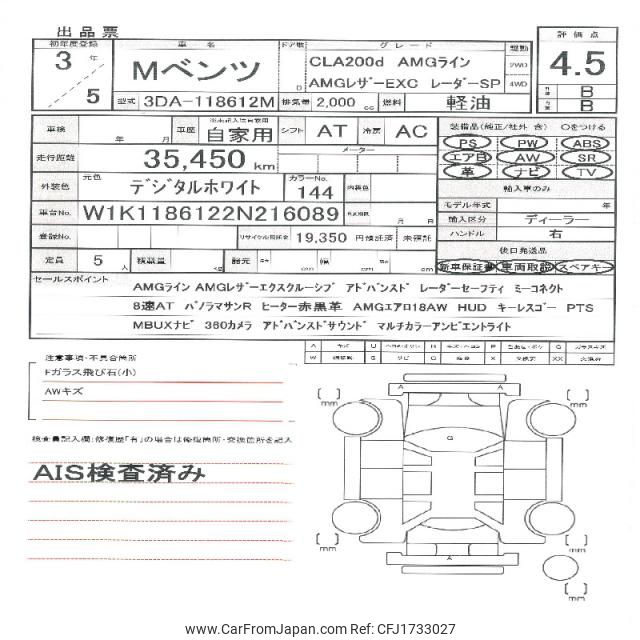 出品票
初年度登録 車名 ドア数 グレード 駆動 評価点
3年/5 Mベンツ D CLA200d AMGライン 2WD 4.5
AMGレザーEXC レーダーSP 4WD
B
B
型式 3DA-118612M 排気量 2,000 cc 燃料 軽油
車検 年 月 車歴 自家用 シフト AT 冷房 AC
装備品(純正/社外 含) ○をつける
PS PW ABS
エアB AW SR
革 ナビ TV
走行距離 35,450 km メーター
外装色 元色 デジタルホワイト カラーNo. 144 内装色
輸入車のみ
モデル年式 年
車台No. W1K1186122N216089 月 日
輸入区分 ディーラー
ハンドル 右
登録No. リサイクル預託金 19,350 円預託済 未預託
後日発送品
定員 5人 積載量 kg 諸元 長さ cm 幅 cm 高さ cm
新車保証書 車両取説 スペアキー
セールスポイント
AMGライン AMGレザーエクスクルーシブ アドバンスド レーダーセーフティ ミーコネクト
8速AT パノラマサンR ヒーター赤黒革 AMGエアロ18AW HUD キーレスゴー PTS
MBUXナビ 360カメラ アドバンスドサウンド マルチカラーアンビエントライト
注意事項・不具合箇所
Fガラス飛び石(小)
AWキズ
検査員記入欄:修復歴「有」の場合は修復箇所・交換箇所を記入
AIS検査済み
A U W X XX
mm mm
A A
G
A
mm mm
mm
© CarFromJapan | CarFromJapan Ref: CFJ1733027